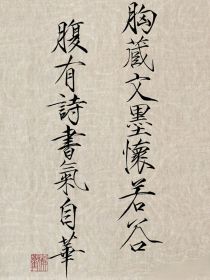 胸藏文墨懷若谷
腹有詩書氣自華